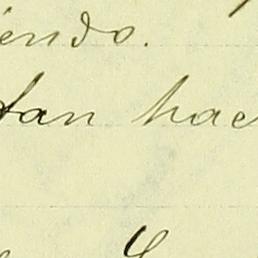 iendo.
tan hac